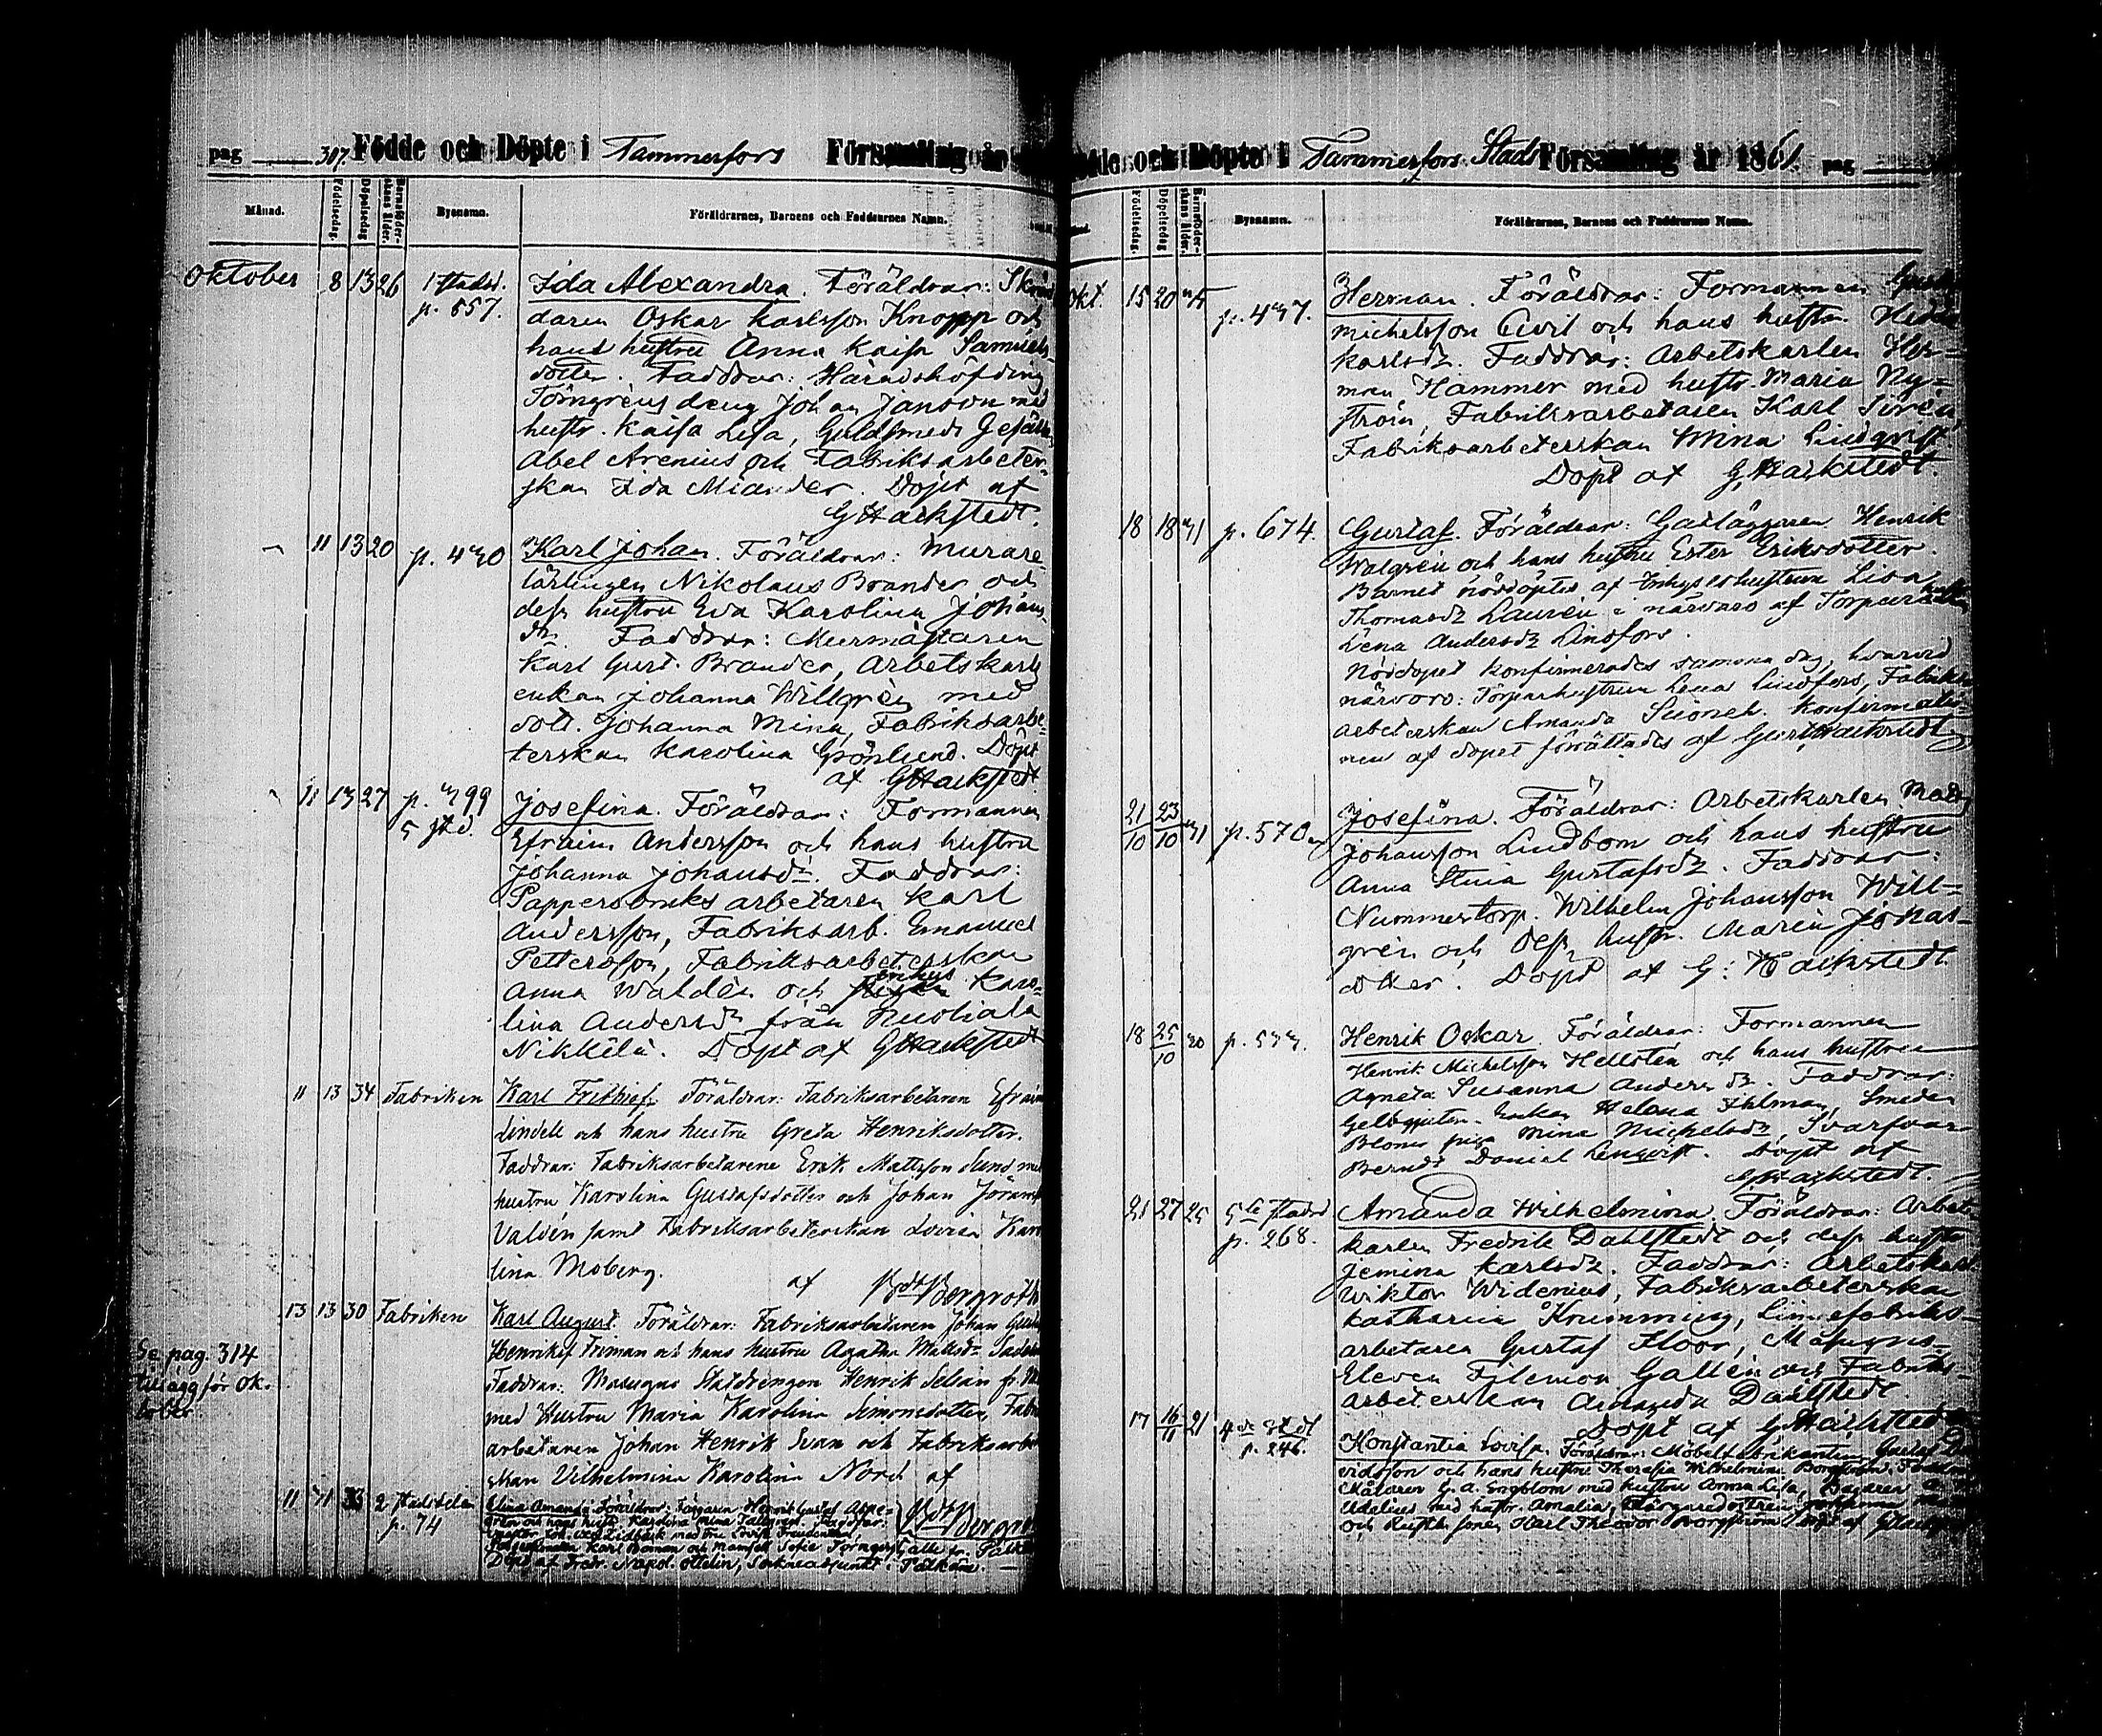 pag 307. Födde och Döpte i Tammerfors Församling år
Månad. Födelsedag. Döpelsedag Barnaföderskans ålder. Bysnamn. Föräldrarnes, Barnens och Faddrarnes Namn.
Oktober 8 13 26 1 stadsd. p. 557. Ida Alexandra. Föräldrar: Skräd
daren Oskar Karlsson Knopp och
hans hustru Anna Kaisa Samuels-
dotter. Faddrar: Häradshöfding
Törngrens dreng Johan Janson med
hustr. Kaisa Lisa, Guldsmeds Gesällen
Abel Arenius och Fabriksarbeter-
skan Ida Miander. Döpt af
G Hackstedt.
11 13 20 p. 430 Karl Johan. Föräldrar: Murare
lärlingen Nikolaus Brander och
dess hustru Eva Karolina Johans
dr. Faddrar: Murmästaren
Karl Gust. Brander, Arbetskarls
enkan Johanna Willgrén med
dott. Johanna Mina, Fabriksarbe-
terskan Karolina Grönlund. Döpt
af G Hackstedt
11 13 27 p. 399 5 std. Josefina. Föräldrar: Formannen
Efraim Andersson och hans hustru
Johanna Johansdr. Faddrar:
Pappersbruks arbetaren Karl
Andersson, Fabriksarb. Emanuel
Pettersson, Fabriksarbeterskan
Anna Waldén och Karo-
lina Andersdr från
Nikkilä. Döpt af G Hackstedt
11 13 34 Fabriken Karl Frithiof. Föräldrar: Fabriksarbetaren Efraim
Lindell och hans hustru Greta Henriksdotter.
Faddrar: Fabriksarbetarene Erik Mattsson Sund med
hustru Karolina Gustafsdotter och Johan
Valdén samt Fabriksarbeterskan Lovisa Karo
lina Moberg. af Bergroth
13 13 30 Fabriken Karl August. Föräldrar: Fabriksarbetaren Johan Gustaf
Henriksf Friman och hans hustru Agatha Mattsdr
Faddrar: Masugns Stalldrengen Henrik Selin
med Hustru Maria Karolina Simonsdotter, Fabr
arbetaren Johan Henrik Svan och Fabriksarbe
skan Vilhelmina Karolina Nord. af
Se pag. 314
tillägg för Ok-
tober.
11 31 33 2 stadsdelen p. 74 Elina Amanda. Föräldrar: Färgaren Henrik Gustaf
och hans hustr. Karolina Mina Faddrar:
Lidbäck med fru Lovisa Freudenthal,
Karl Boman och Mamsell Sofia Törnqvist, alle fr.
Döpt af Fredr. Napol. Ottelin, Sockneadjunkt i Pälkäne.
Bergroth
Födde och Döpte i Tammerfors Stads Församling år 1861. pag
Födelsedag. Döpelsedag Barnaföderskans ålder. Bysnamn. Föräldrarnes, Barnens och Faddrarnes Namn.
Okt. 15 20 p. 437. Herman. Föräldrar: Formannen
Michelsson Civil och hans hustr.
Karlsdr. Faddrar: Arbetskarlen Her-
man Hammer med hustr. Maria Ny-
ström, Fabriksarbetaren Karl Sirén
Fabriksarbeterskan Mina Lindqvist
Döpt af G Hackstedt.
18 18 31 p. 674. Gustaf. Föräldrar: Gatläggaren Henrik
Walgrén och hans hustru Ester Eriksdotter.
Barnet nöddöptes af Inhyseshustrun Lisa
Thomasdr Laurén i närvaro af Torpare hustr
Lena Andersdr Lindfors.
Nöddopet konfirmerades samma dag, hvarvid
närvoro: Torparhustrun Lena Lindfors, Fabriks
arbeterskan Amanda Konfirmatio-
nen af dopet förrättades af Gust Hackstedt
21/10 23/10 31 p. 570 Josefina. Föräldrar: Arbetskarlen
Johansson Lindbom och hans hustru
Anna Stina Gustafsdr. Faddrar:
Nummertorp. Wilhelm Johansson Will-
grén och dess hustr. Maria Johas-
dotter. Döpt af G: Hackstedt
18 25/10 30 p. 533. Henrik Oskar. Föräldrar: Formannen
Henrik Michelsson Hellstén och hans hustru
Agneta Susanna Andersdr. Faddrar:
Enkan Helena Ihlman, Smeden
Bloms piga Mina Michelsdr, Svarfvar
Berndt Daniel Lenqvist. Döpt af
G Hackstedt.
21 27 25 5te stadsd p. 268. Amanda Wilhelmina. Föräldrar: Arbets-
karlen Fredrik Dahlstedt och dess hustr
Jemina Karlsdr. Faddrar: Arbetskarl
Wiktor Widenius, Fabriksarbeterskan
Katharina Krumming, Linnefabriks-
arbetaren Gustaf Floor, Masugns-
Eleven Filemon Gallén och Fabriks-
arbeterskan Amanda Dahlstedt.
Döpt af G Hackstedt
17 16/11 21 4de std p. 246. Konstantia Lovisa. Föräldrar: Möbelfabrikanten Gustaf Da
vidsson och hans hustru Theresia Wilhelmina Borgström.
Målaren G. A. Engblom med hustru Anna Lisa, Bagaren
Udelius med hustr. Amalia,
och Karl Theodor Borgström. Döpt af G Hackstedt